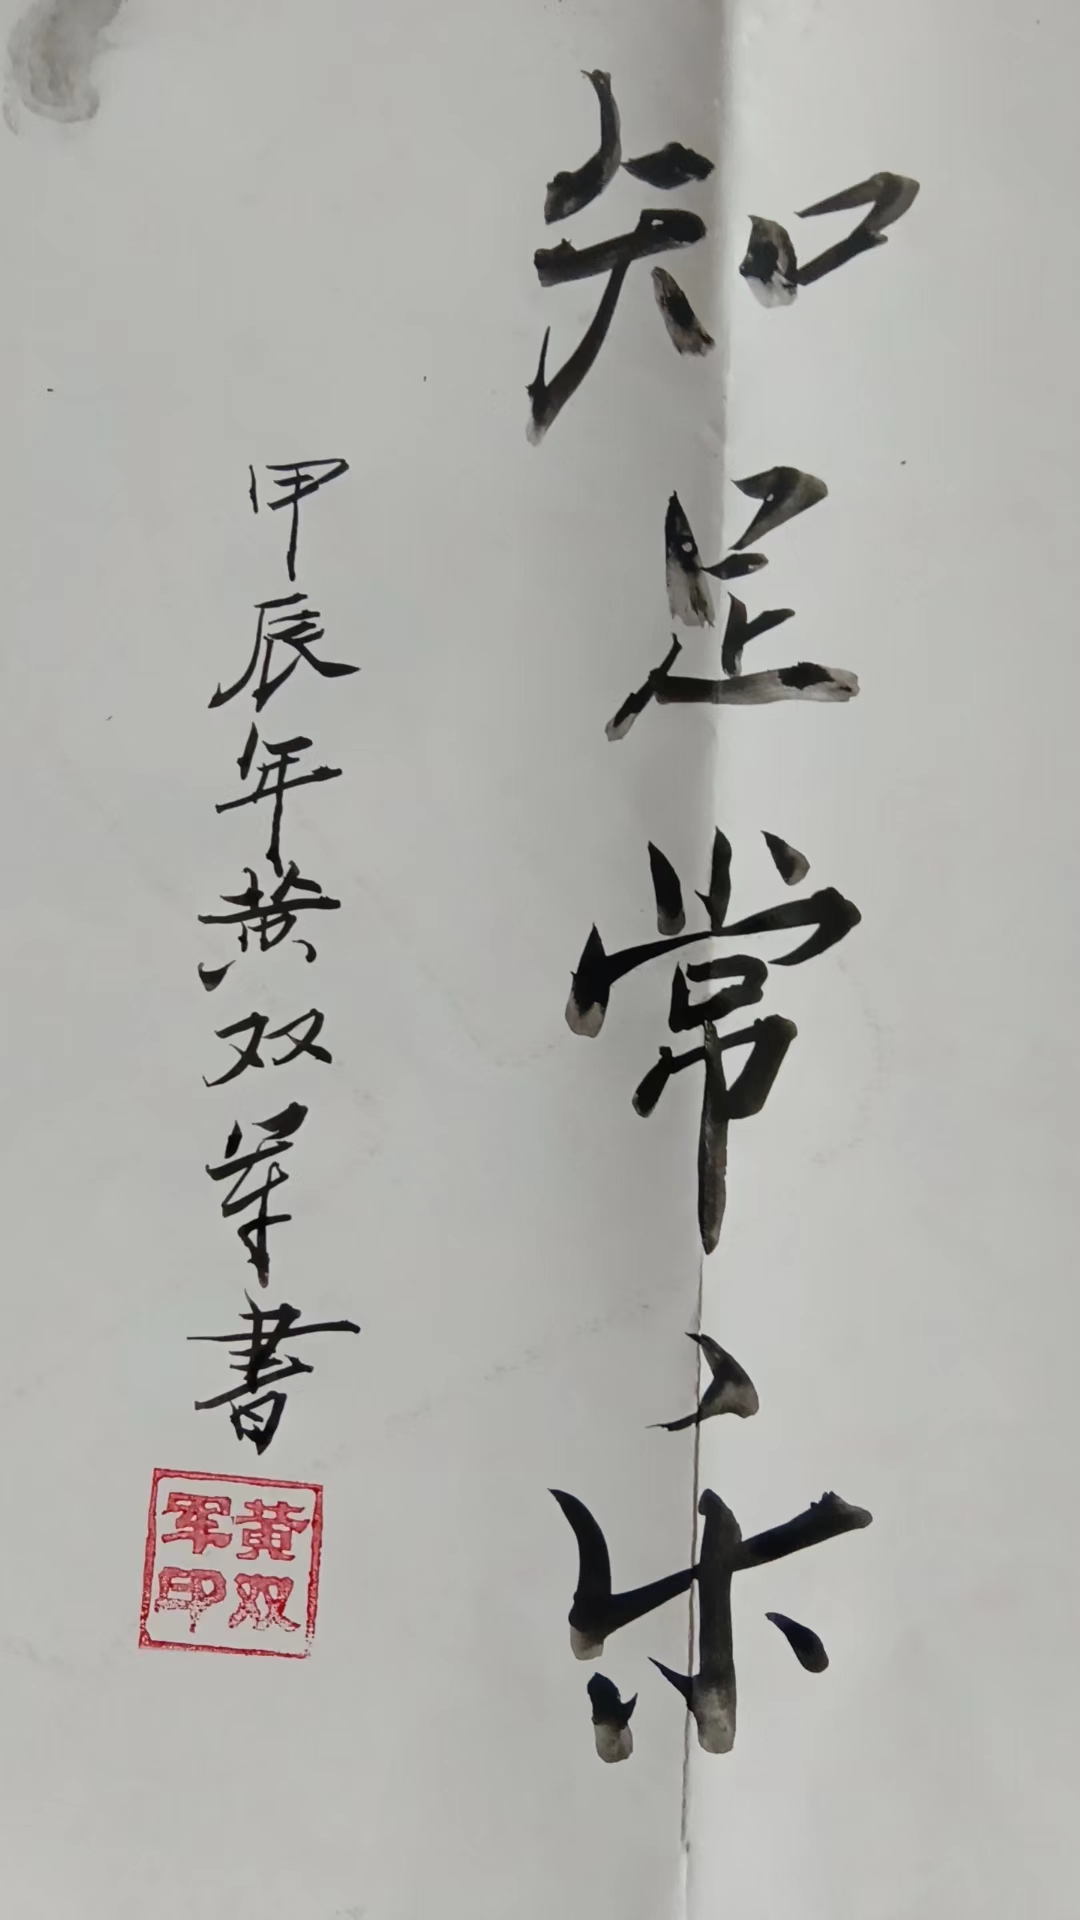 知足常乐
甲辰年黄双军書
黄双
军印